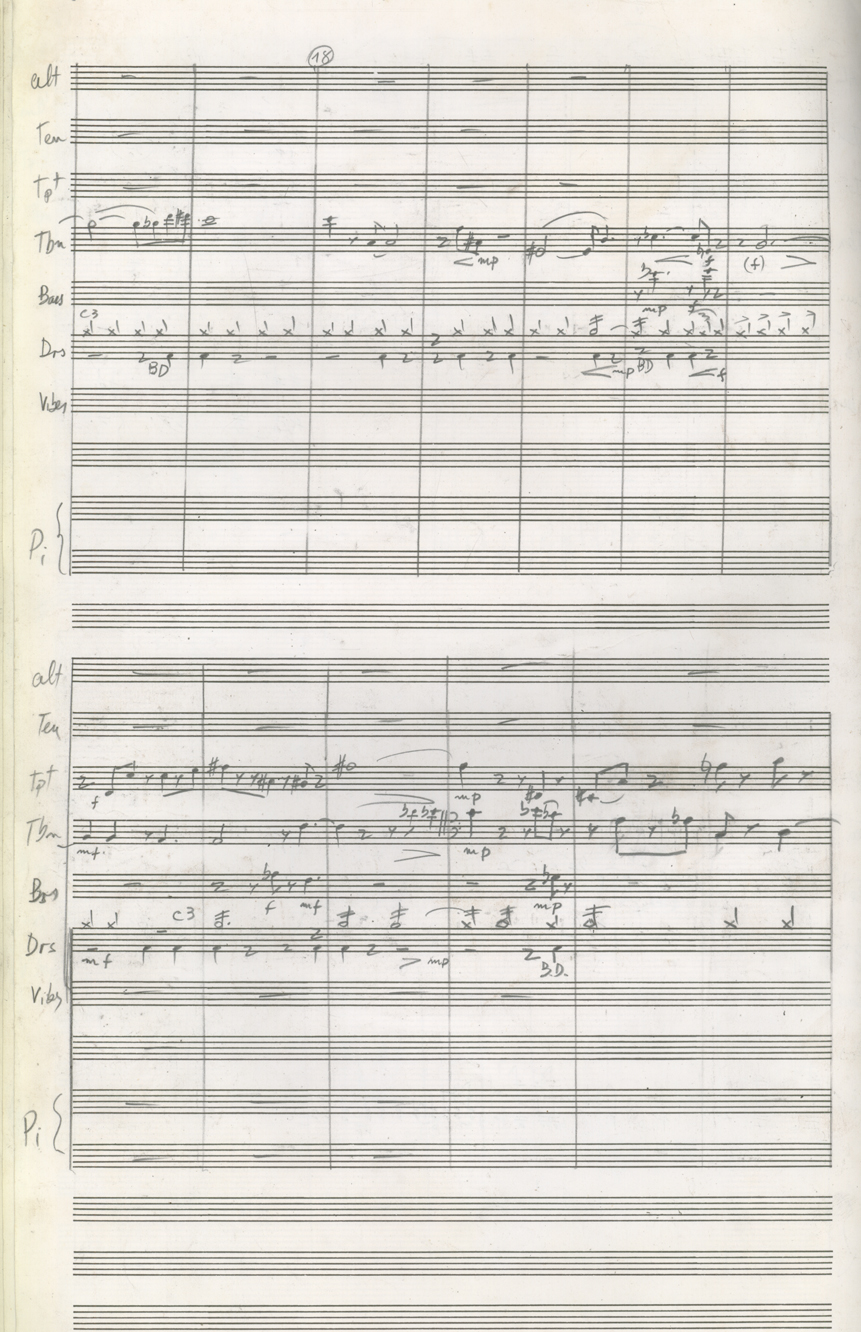 18
alt
Ten
Tpt
Tbn
mp
(f)
Bass
mp f
C3
Drs
BD mp BD f
Vibes
Pi
alt
Ten
Tpt
f mp
Tbn
mf mp
Bss
f mf mp
C3
Drs
mf mp B.D.
Vibes
Pi